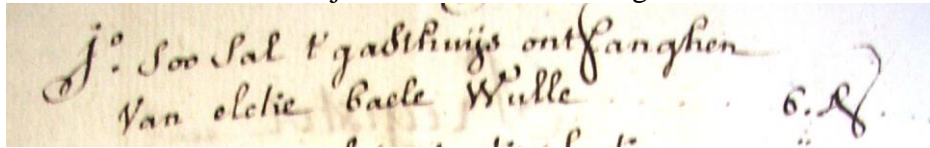 Jº. Soo sal t'gasthuijs ontfanghen
van elcke baele Wulle . . . . 6. ß.